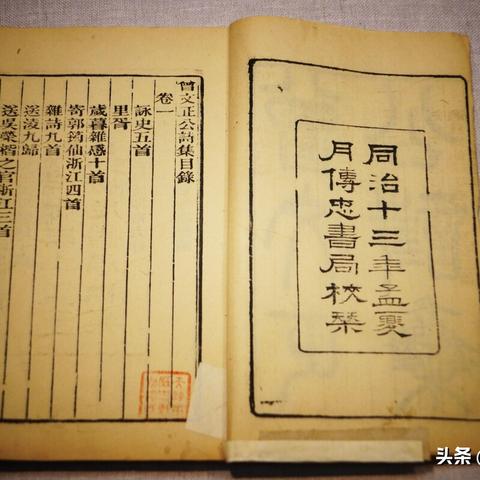 同治十三年孟夏
月傳忠書局校栞
曾文正公詩集目錄
卷一
詠史五首
里胥
歲暮雜感十首
寄郭筠仙浙江四首
雜詩九首
送凌九歸
送吳榮楷之官浙江三首
头条 @